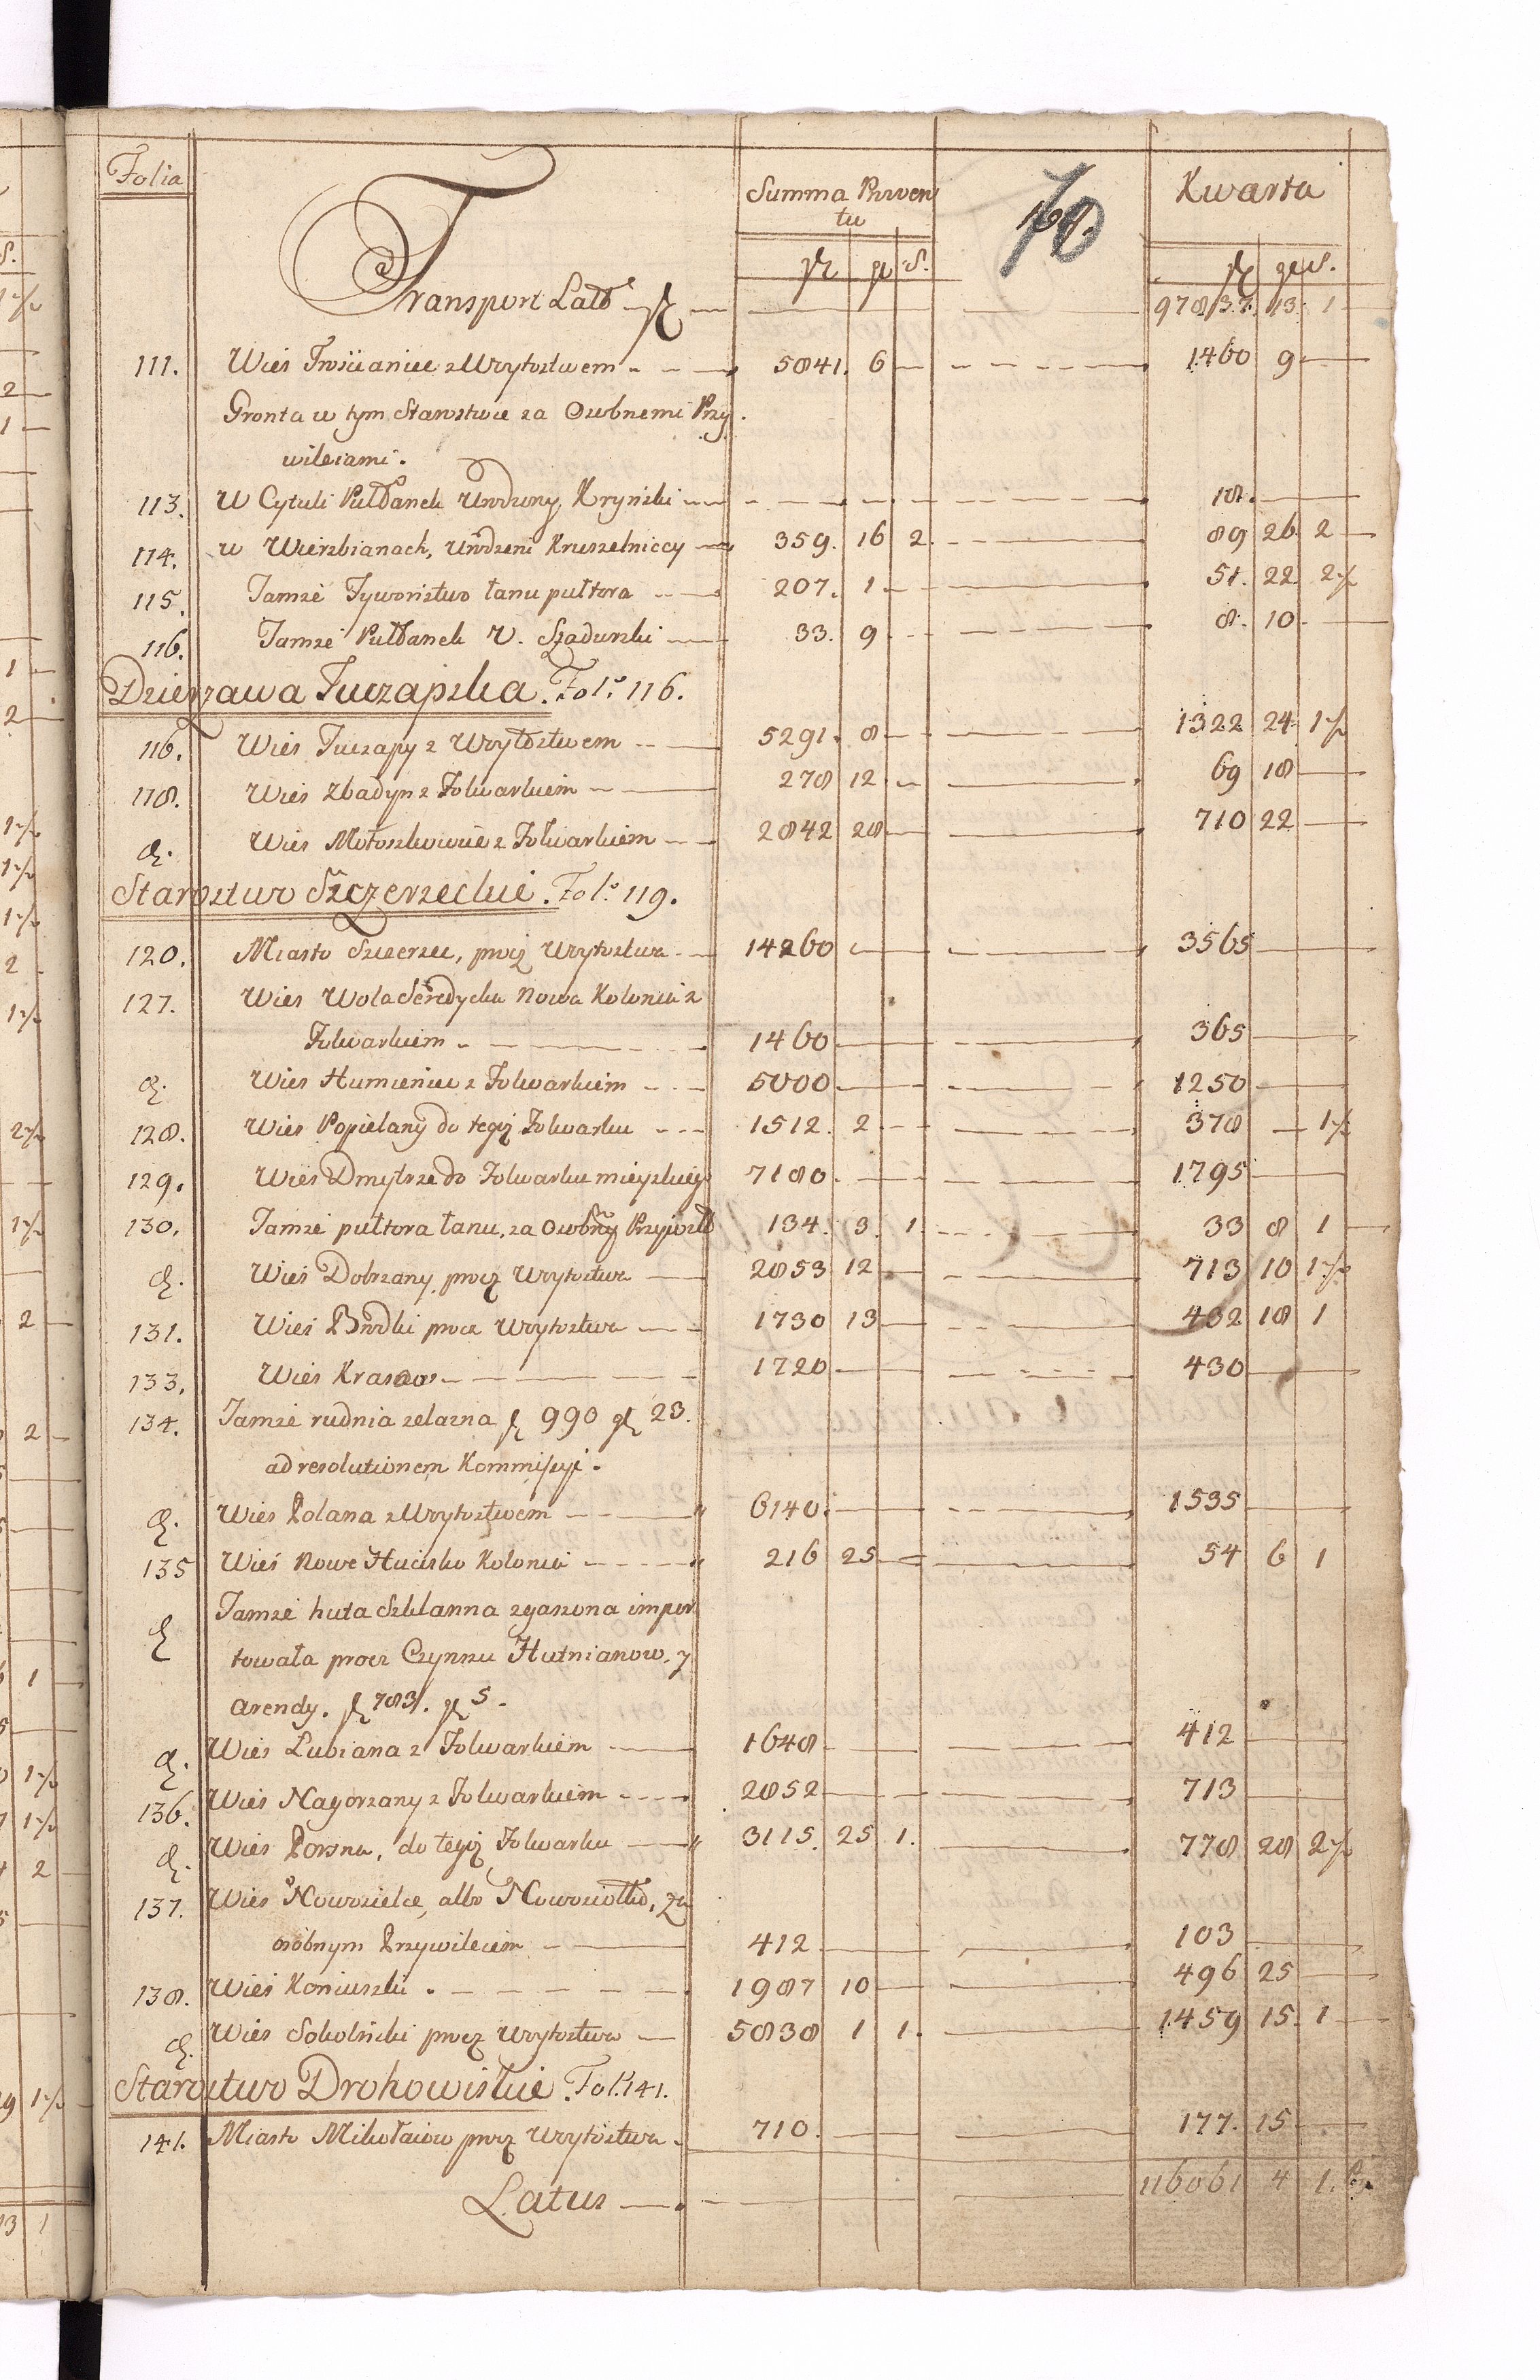 Folia
Summa Proven
tu
70
Kwarta
Transport Lats fl 97837. 13. 1
111. Wieś Trościaniec z Woytostwem 5841. 6 1460 9
Gronta w tym Starostwie za Osobnemi Przy
wileiami.
113. W Cytuli Pułłanek Urodzony Kryński 18.
114. w Wierzbianach, Urodzeni Kruszelniccy 359. 16 2. 89 26 2
115. Tamże Tywoństwo łanu pułtora 207. 1 51. 22 2½
116. Tamże Pułłanek U. Szadurski 33. 9 8. 10
Dzierzawa Tuczapska. Fol: 116.
116. Wieś Tuczapy z Woytostwem 5291. 8 1322 24 1½
118. Wieś Zbadyn z Folwarkiem 278 12 69 18
Wieś Mołoszkowice z Folwarkiem 2842 28 710 22
Starostwo Szczerzeckie. Fol: 119.
120. Miasto Szczerzec, procz Woytostwa 14260 3565
127. Wieś Wola Serdycka Nowa Kolonia z
Folwarkiem 1460 365
Wieś Humieniec z Folwarkiem 5000 1250
128. Wieś Popielany do tegoż Folwarku 1512. 2 378 1½
129. Wieś Dmytrze do Folwarku mieyskiego 7180 1795
130. Tamże pułtora łanu, za Osobny Przywil 134. 3. 1. 33 8 1
Wieś Dobrzany, procz Woytostwa 2853 12 713 10 1½
131. Wieś Brodki procz Woytostwa 1730 13 432 18 1
133. Wieś Krasow 1720 430
134. Tamże rudnia żelazna fl 990 gl 23.
ad resolutionem Kommissyi.
Wieś Polana z Woytostwem 6140. 1535
135 Wieś Nowe Hucisko Kolonia 216 25 54 6 1
Tamże huta Szklanna zgaszona impor
towała procz Czynszu Hutnianow. y
arendy. fl 783. gl 5.
Wieś Lubiana z Folwarkiem 1648 412
136. Wieś Nagorzany z Folwarkiem 2852 713
Wieś Porszna, do tegoż Folwarku 3115. 25 1. 778 28 2½
137. Wieś Nowosielce, albo Nowosiołko, za
osobnym Przywileiem 412 103
138. Wieś Koniuszki 1987 10 496 25
Wieś Sokolniki procz Woytostwa 5838 1 1. 1459 15. 1
Starostwo Drohowiskie. Fol: 141.
141. Miasto Mikołaiow procz Woytostwa 710. 177. 15
Latus 116061 4 1.